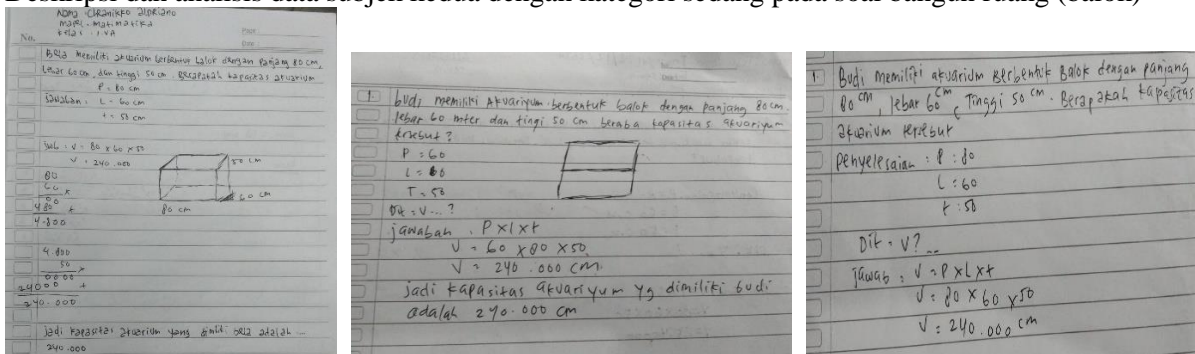 Deskripsi dan analisis data subjek kedua dengan kategori sedang pada soal bangun ruang (balok)
Nama
Mapel : Matimatika
kelas : IVA
No.
Date :
Bela memiliki akuarium berbentuk balok dengan panjang 80 cm,
Lebar 60 cm, dan tinggi 50 cm. Berapakah kapasitas akuarium
P = 80 cm
Jawaban : L = 60 cm
t = 50 cm
Jwb : V = 80 x 60 x 50
V = 240.000
80
60 x
00
480 +
4.800
50 cm
60 cm
80 cm
4.800
50 x
0000
24000 +
240.000
Jadi kapasitas akuarium yang dimiliki bela adalah
240.000
1. budi memiliki Akvariyum berbentuk balok dengan panjang 80 cm.
lebar 60 mter dan tingi 50 cm beraba kapasitas akuariyum
tersebut ?
P = 60
L = 80
T = 50
Dit : V... ?
jawaban : P x l x t
V = 60 x 80 x 50
V = 240.000 cm
jadi kapasitas akuariyum yg dimiliki budi
adalah 240.000 cm
1 Budi memiliki akuarium Berbentuk Balok dengan panjang
80 cm, lebar 60 cm, Tinggi 50 cm. Berapakah kapasitas
akuarium tersebut
penyelesaian : P : 80
L : 60
t : 50
Dit : V? ...
Jawab : V = P x L x t
V : 80 x 60 x 50
V : 240.000 cm